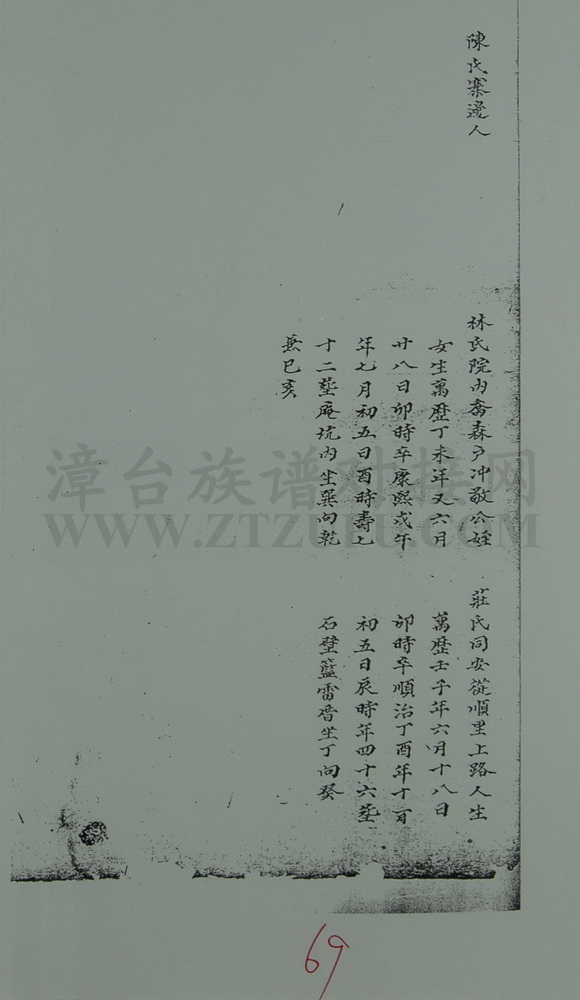 陳氏寨邊人
林氏院內喬森戶冲敬公姪
女生萬歷丁未年又六月
廿八日卯時卒康熙戊午
年七月初五日酉時壽七
十二塟庵坑內坐巽向乾
兼巳亥
莊氏同安從順里上路人生
萬歷壬子年六月十八日
卯時卒順治丁酉年十一月
初五日辰時年四十六塟
石壁籃雷唇坐丁向癸
漳台族谱对接网
WWW.ZTZUPU.COM
69